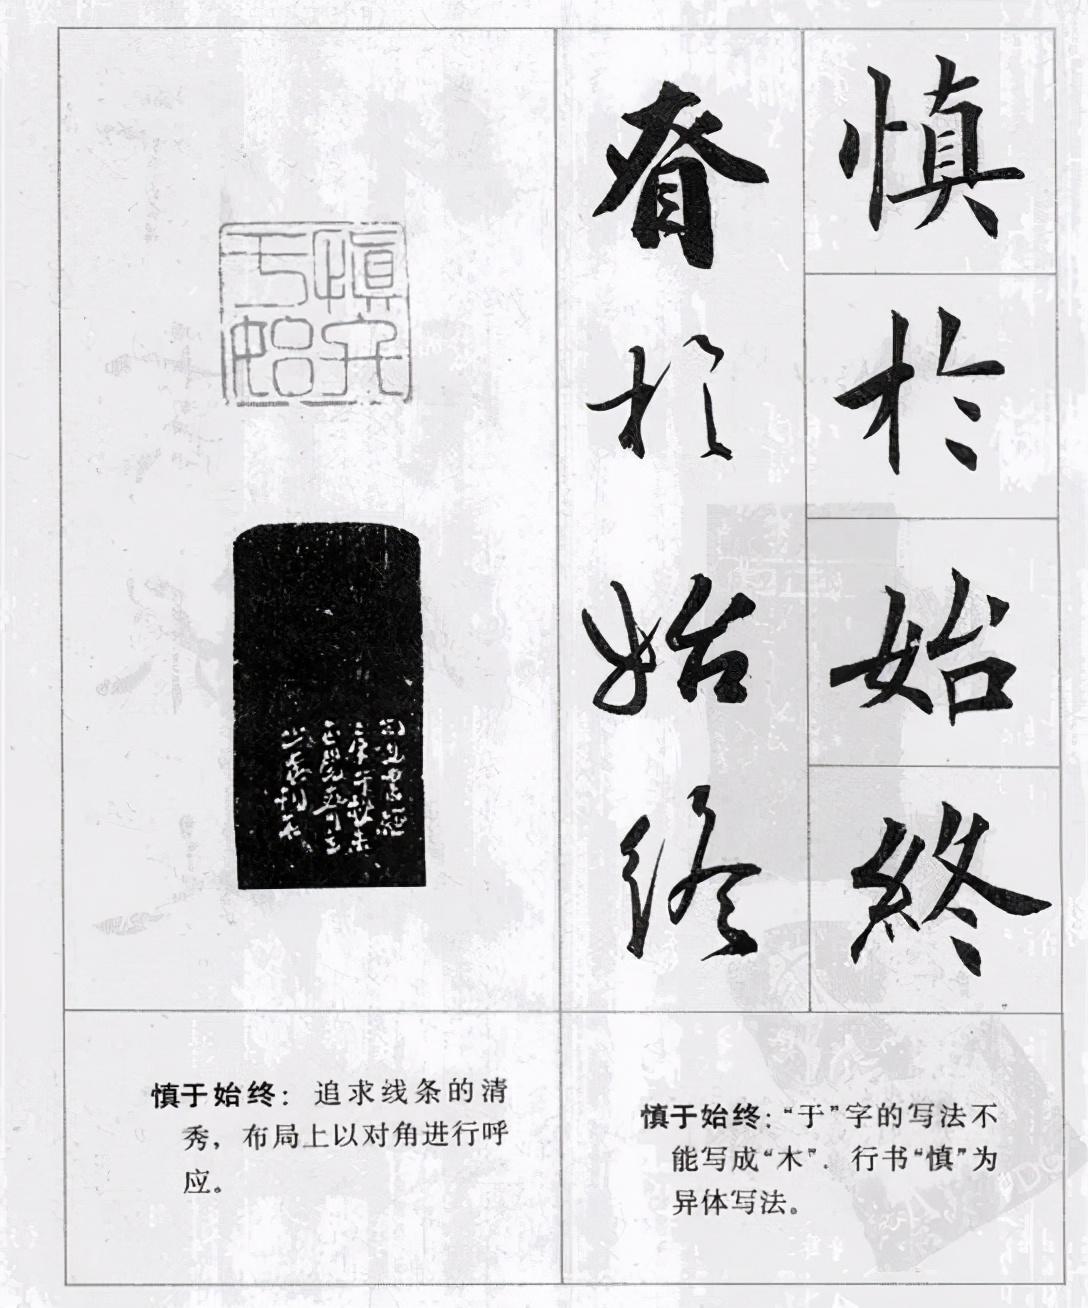 慎於始終
昚於始终
慎于始终：追求线条的清
秀，布局上以对角进行呼
应。
慎于始终：“于”字的写法不
能写成“木”．行书“慎”为
异体写法。